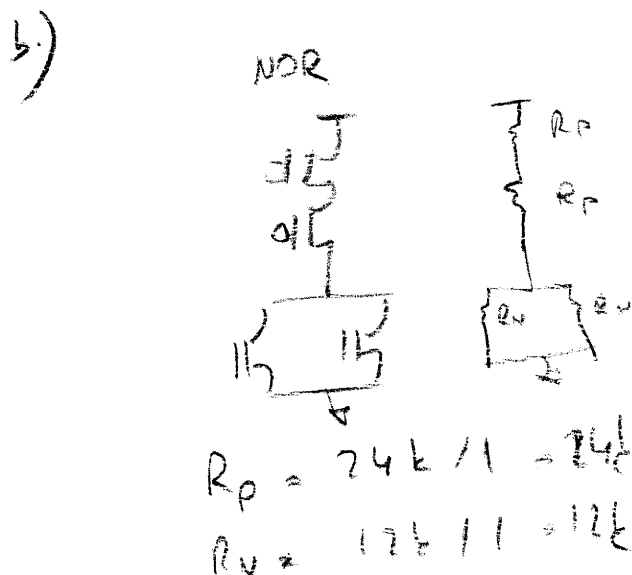 b.)
NOR
Rp
Rp
RN RN
Rp = 24k / 1 = 24k
RN = 12k / 1 = 12k